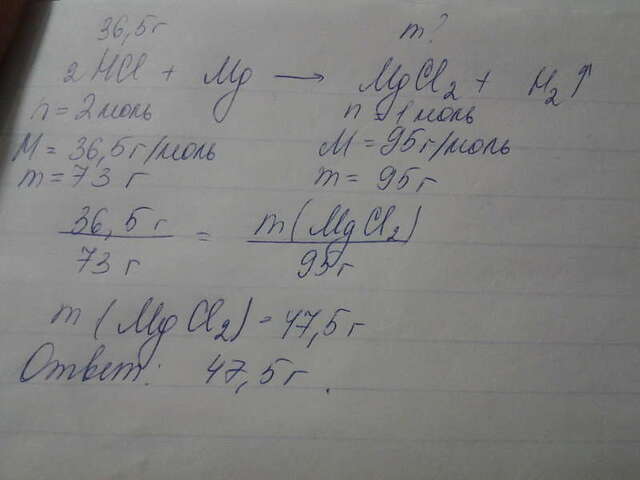 36,5г m?
2HCl + Mg → MgCl₂ + H₂↑
n = 2моль n = 1моль
M = 36,5г/моль M = 95г/моль
m = 73 г m = 95г
36,5 г = m(MgCl₂)
73 г 95г
m (MgCl₂) = 47,5г
Ответ: 47,5г.